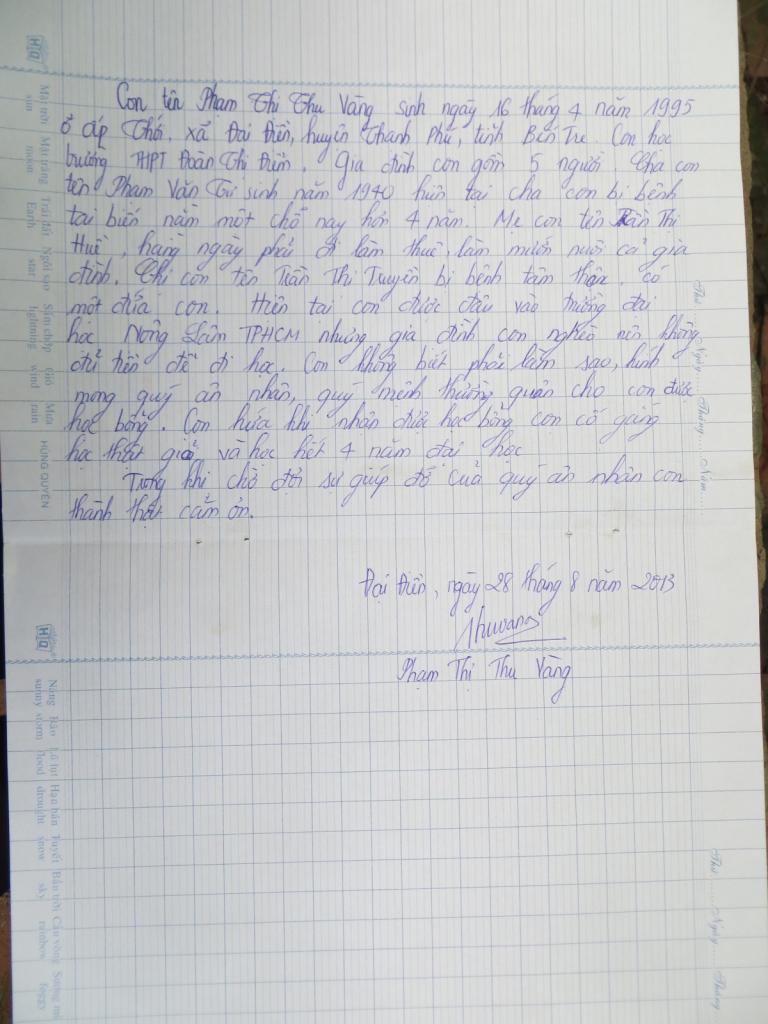 Con tên Phạm Thị Thu Vàng sinh ngày 16 tháng 4 năm 1995
ở ấp Thới, xã Đại Điền, huyện Thạnh Phú, tỉnh Bến Tre. Con học
trường THPT Đoàn Thị Điểm. Gia đình con gồm 5 người. Cha con
tên Phạm Văn Tư sinh năm 1940 hiện tại cha con bị bệnh
tai biến nằm một chỗ nay hơn 4 năm. Mẹ con tên Trần Thị
Huê, hàng ngày phải đi làm thuê, làm mướn nuôi cả gia
đình. Chị con tên Trần Thị Truyền bị bệnh tâm thần, có
một đứa con. Hiện tại con được đậu vào trường đại
học Nông Lâm TPHCM nhưng gia đình con nghèo nên không
đủ tiền để đi học. Con không biết phải làm sao, kính
mong quý ân nhân, quý mạnh thường quân cho con được
học bổng. Con hứa khi nhận được học bổng con cố gắng
học thật giỏi và học hết 4 năm đại học
Trong khi chờ đợi sự giúp đỡ của quý ân nhân con
thành thật cám ơn.
Đại Điền, ngày 28 tháng 8 năm 2013
Thuvang
Phạm Thị Thu Vàng
HQ
Mặt trời Mặt trăng Trái đất Ngôi sao Sấm chớp Gió Mưa HÙNG QUYÊN
sun moon Earth star lightning wind rain
Thứ...... Ngày...... Tháng...... Năm......
HQ
Nắng Bão Lũ lụt Hạn hán Tuyết Bầu trời Cầu vồng Sương mù
sunny storm flood drought snow sky rainbow foggy
Thứ...... Ngày...... Tháng